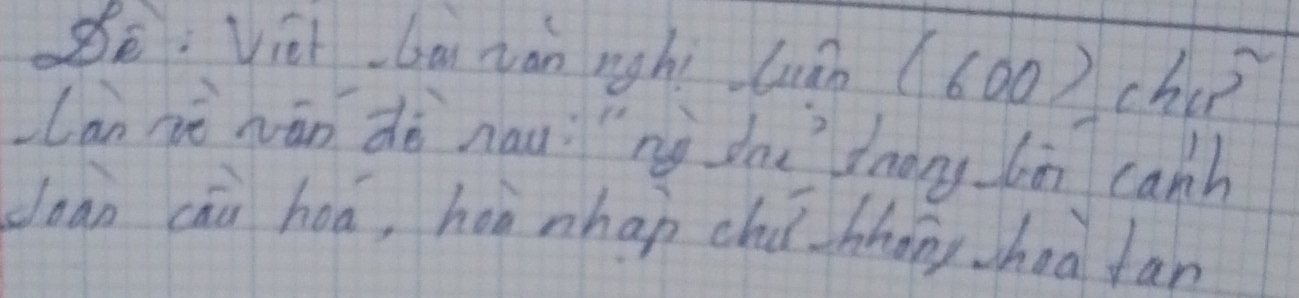 Đề: Viết bài văn nghị luận (600) chữ
bàn về vấn đề sau: "trong bối cảnh
toàn cầu hoá, hoà nhập chứ không hoà tan